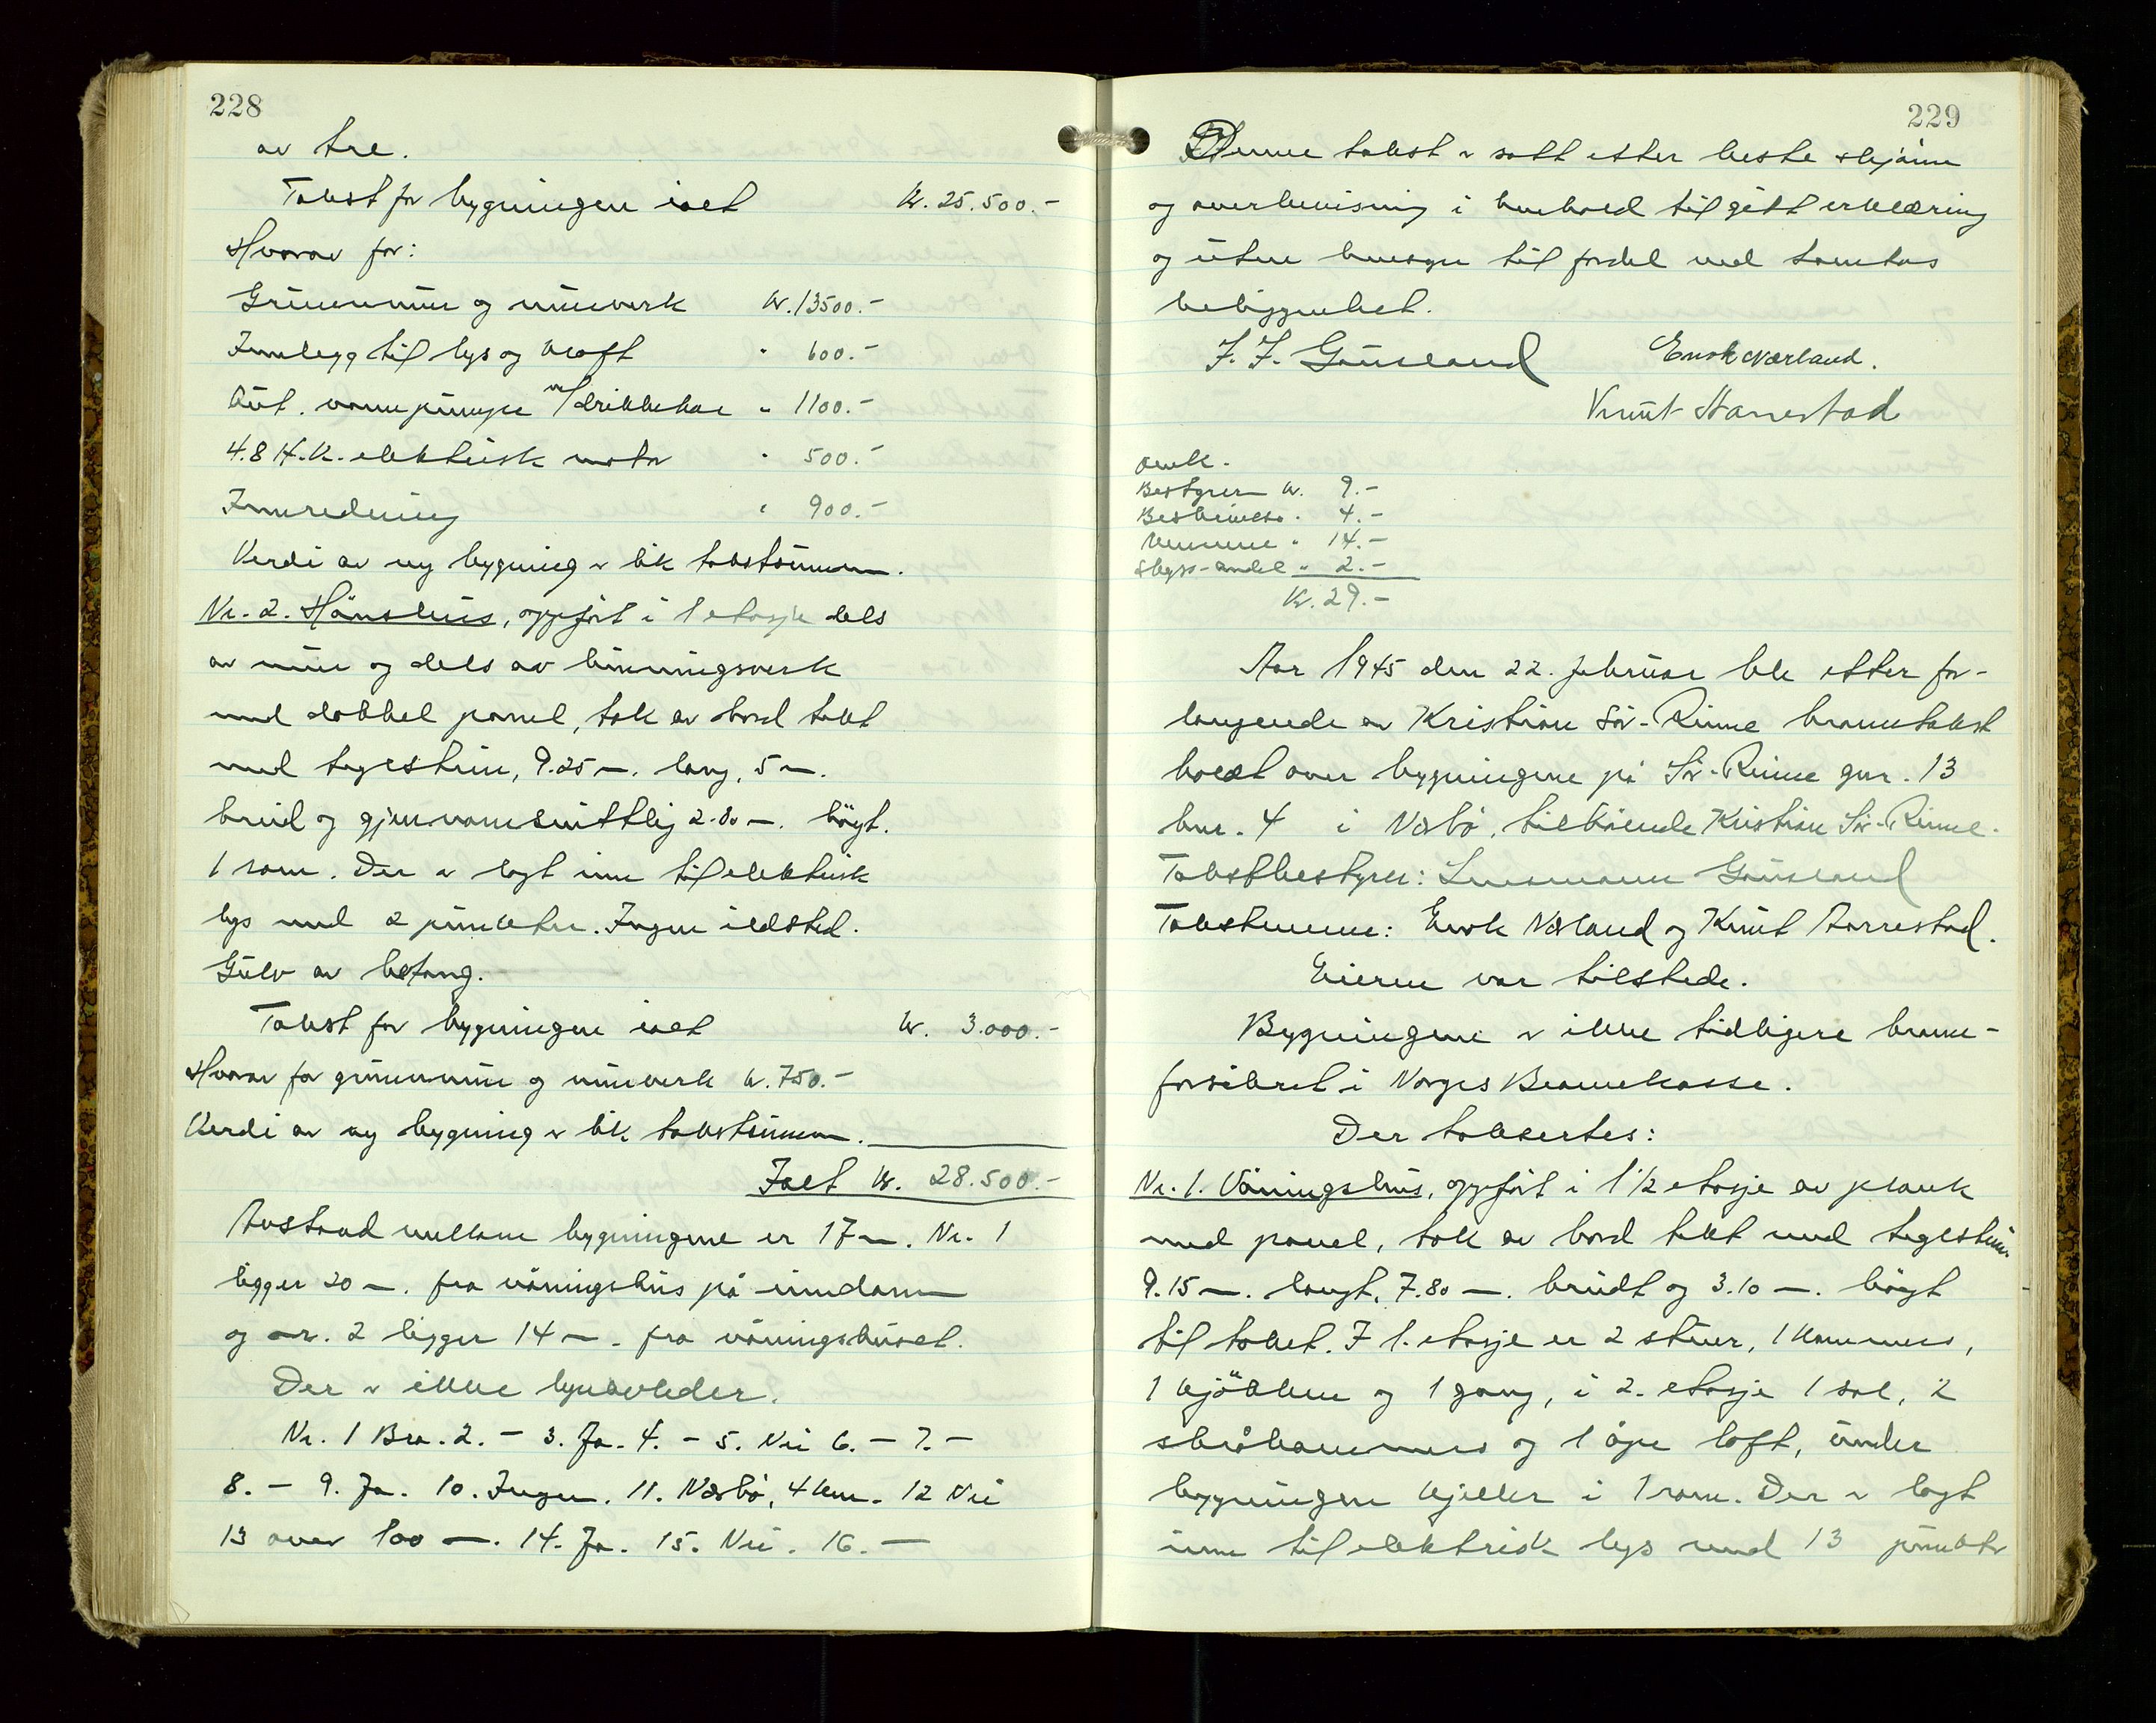 228
av tre.
Takst for bygningen ialt kr. 25.500.-
Hvorav for:
Grunnmur og murverk kr. 13500.-
Innlegg til lys og kraft " 600.-
Aut. vannpumpe m/drikkekar " 1100.-
4.8 H.K. elektrisk motor " 500.-
Innredning " 900.-
Verdi av ny bygning er lik takstsummen.
Nr. 2. Hönsehus, oppfört i 1 etasje dels
av mur og dels av binningsverk
med dobbel panel, tak av bord tekt
med teglstein, 9.25 m. lang, 5 m.
breid og gjennomsnittlig 2.80 m. högt.
1 rom. Der er lagt inn til elektrisk
lys med 2 punkter. Ingen ildsted.
Gulv av betong.
Takst for bygningen ialt kr. 3.000.-
Hvorav for grunnmur og murverk kr. 750.-
Verdi av ny bygning er lik takstsummen.
Ialt kr. 28.500.-
Avstand mellom bygningene er 17 m. Nr. 1
ligger 20 m. fra våningshus på eiendommen
og nr. 2 ligger 14 m. fra våningshuset.
Der er ikke lynavleder.
Nr. 1 Bra. 2. - 3. Ja. 4. - 5. Nei 6. - 7. -
8. - 9. Ja. 10. Ingen. 11. Nærbö, 4 km. 12 Nei
13 over 100 m. 14. Ja. 15. Nei. 16. -
229
Denne takst er satt etter beste skjönn
og overbevisning i henhold til gitt erklæring
og uten hensyn til fordel ved tomtens
beliggenhet.
J. J. Gausland Enok Nærland.
Knut Harrestad
Omk.
Bestyrer kr. 9.-
Beskrivelse " 4.-
Mennene " 14.-
Skyss-andel " 2.-
Kr. 29.-
Aar 1945 den 22. februar ble etter for-
langende av Kristian Sör-Reime branntakst
holdt over bygningene på Sör-Reime gnr. 13
bnr. 4 i Nærbö, tilhörende Kristian Sör-Reime.
Takstbestyrer: Lensmann Gausland
Takstmenn: Enok Nærland og Knut Aarrestad.
Eieren var tilstede.
Bygningene er ikke tidligere brann-
forsikret i Norges Brannkasse.
Der takseres:
Nr. 1. Våningshus, oppfört i 1½ etasje av plank
med panel, tak av bord tekt med teglstein
9.15 m. langt, 7.80 m. breidt og 3.10 m. högt
til taket. I 1. etasje er 2 stuer, 1 kammers,
1 kjökken og 1 gang, i 2. etasje 1 sal, 2
skråkammers og 1 åpe loft, under
bygningen kjeller i 1 rom. Der er lagt
inn til elektrisk lys med 13 punkter